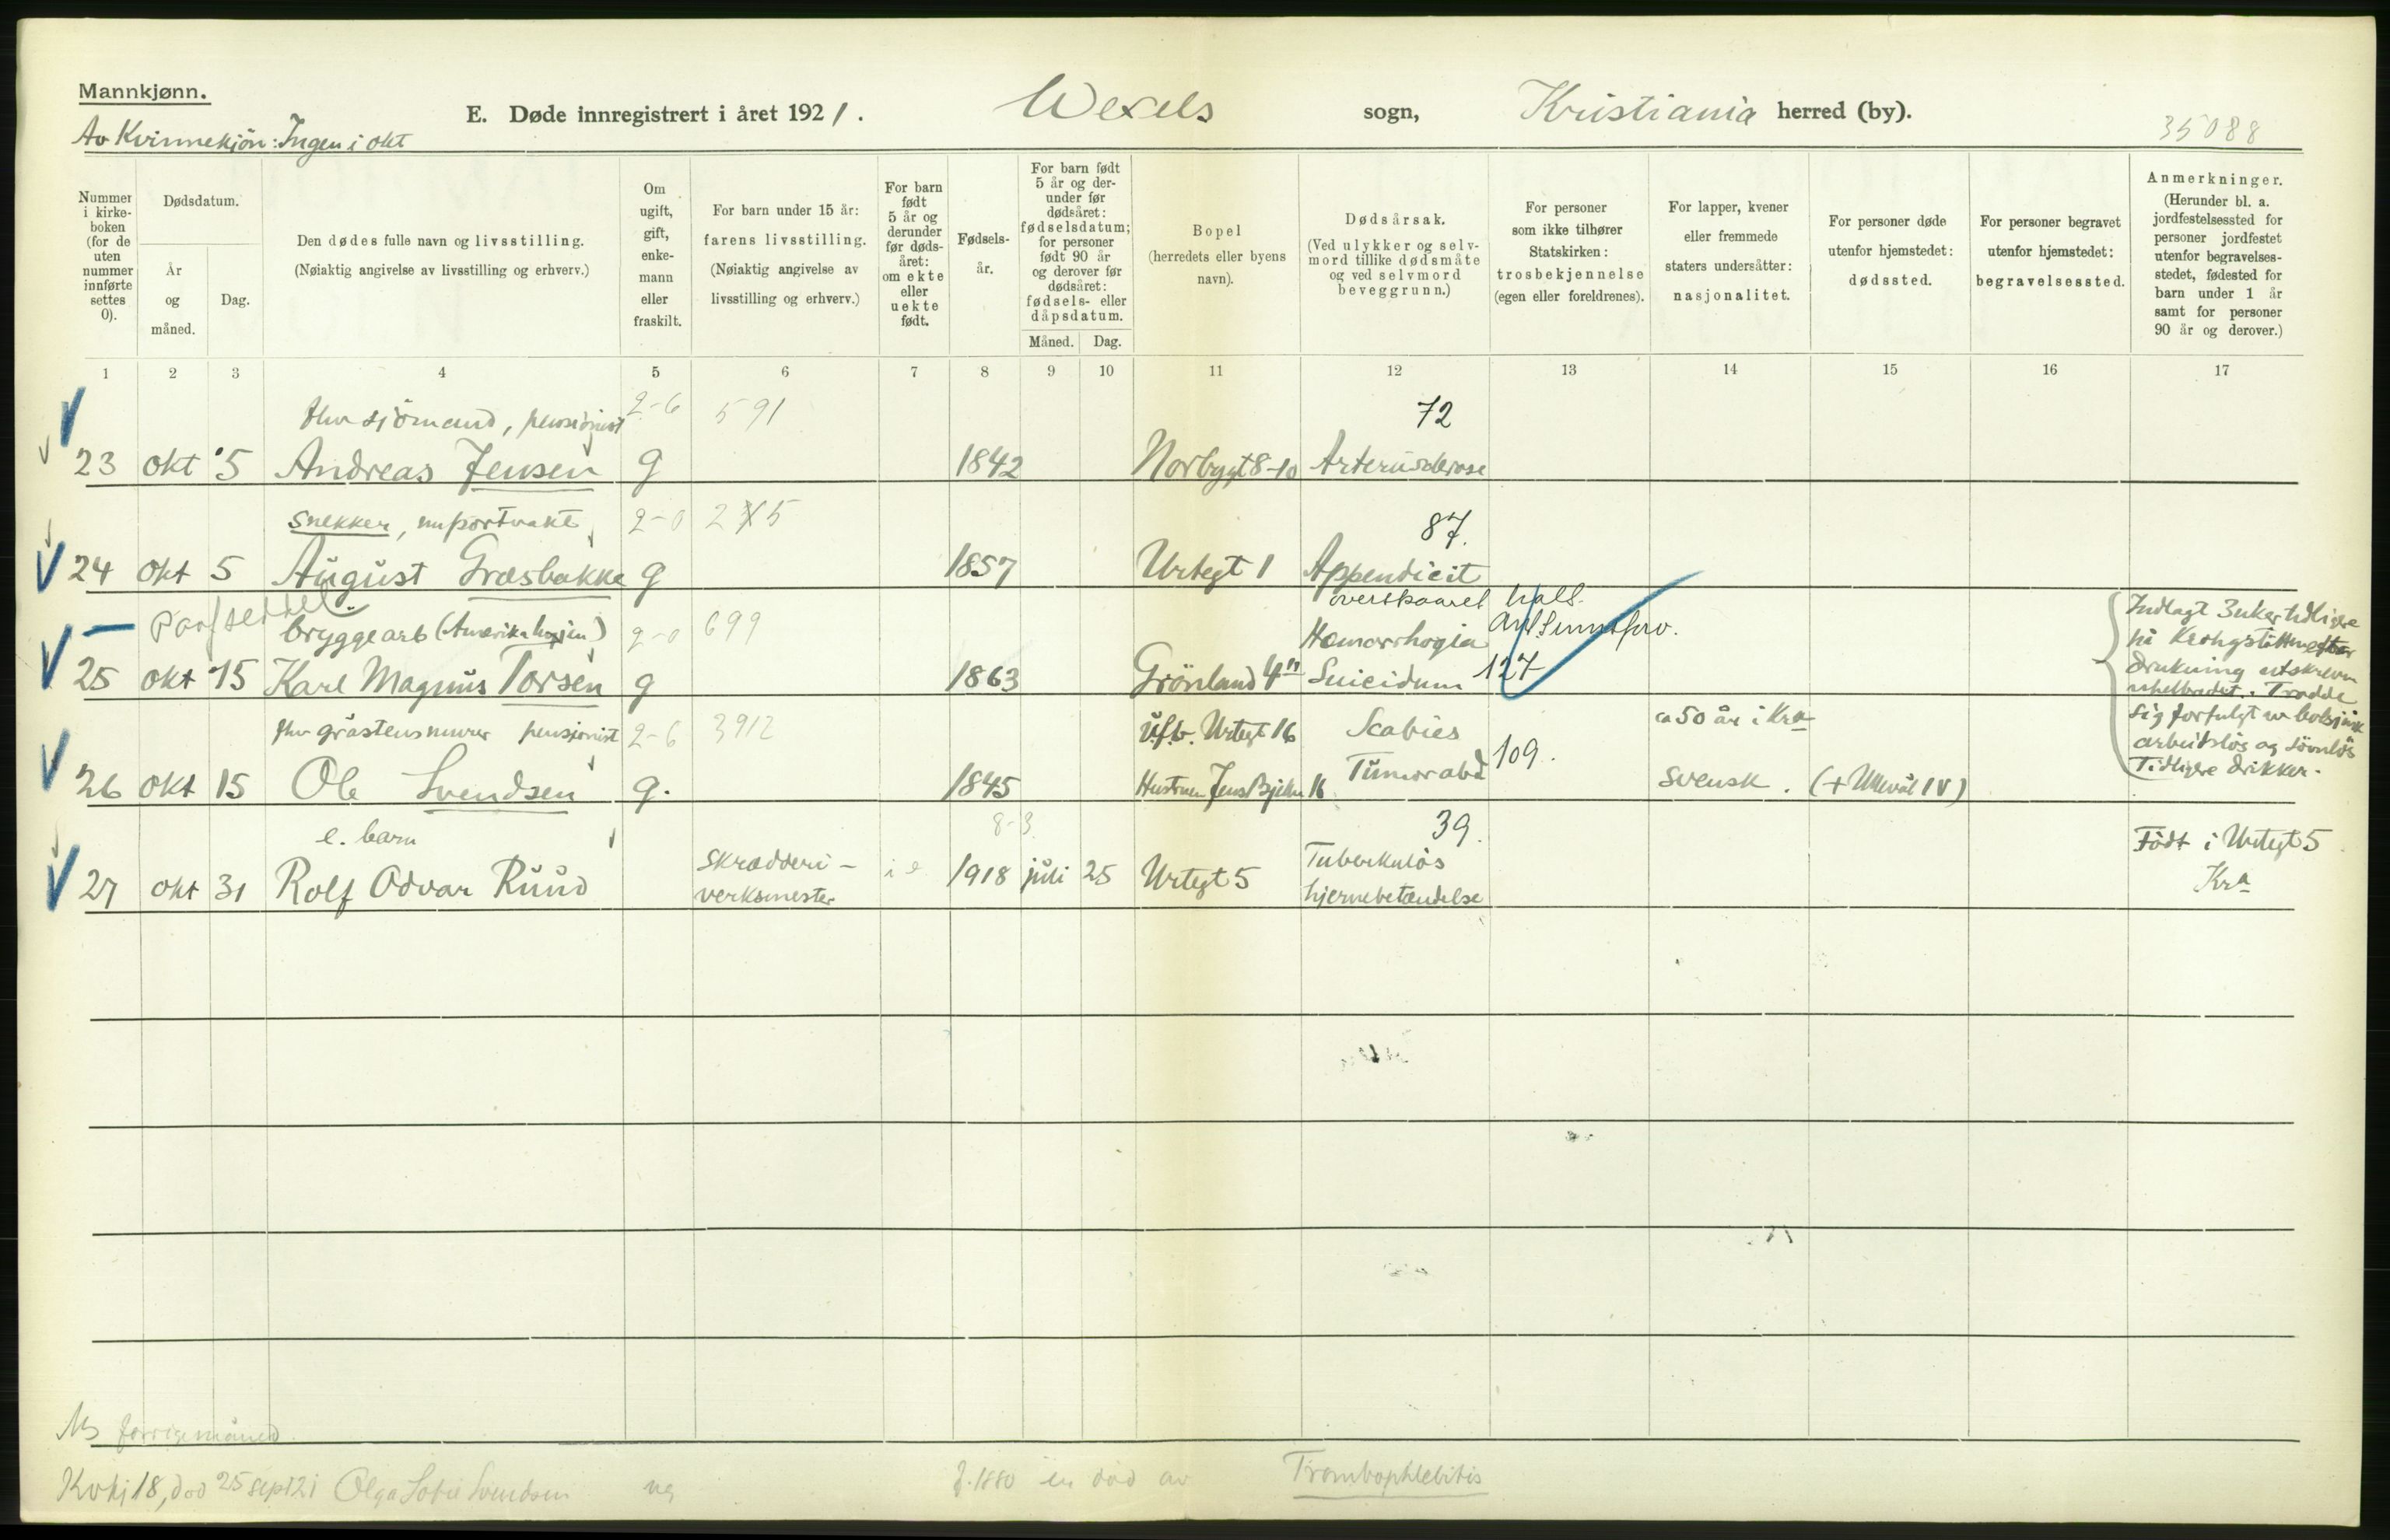 Mannkjønn.
E. Døde innregistrert i året 1921. Wexels sogn, Kristiania herred (by).
Av Kvinnekjön: Ingen i okt
35088
Nummer i kirke-boken (for de uten nummer innførte settes 0).
Dødsdatum.
År og måned.
Dag.
Den dødes fulle navn og livsstilling.
(Nøiaktig angivelse av livsstilling og erhverv.)
Om ugift, gift, enke-mann eller fraskilt.
For barn under 15 år: farens livsstilling. (Nøiaktig angivelse av livsstilling og erhverv.)
For barn født 5 år og derunder før døds-året: om ekte eller uekte født.
Fødsels-år.
For barn født 5 år og der-under før dødsåret: fødselsdatum; for personer født 90 år og derover før dødsåret: fødsels- eller dåpsdatum.
Måned. Dag.
Bopel (herredets eller byens navn).
Dødsårsak. (Ved ulykker og selv-mord tillike dødsmåte og ved selvmord beveggrunn.)
For personer som ikke tilhører Statskirken: trosbekjennelse (egen eller foreldrenes).
For lapper, kvener eller fremmede staters undersåtter: nasjonalitet.
For personer døde utenfor hjemstedet: dødssted.
For personer begravet utenfor hjemstedet: begravelsessted.
Anmerkninger. (Herunder bl. a. jordfestelsessted for personer jordfestet utenfor begravelses-stedet, fødested for barn under 1 år samt for personer 90 år og derover.)
1 2 3 4 5 6 7 8 9 10 11 12 13 14 15 16 17
fhv sjömand, pensionist 2-6 591 72
23 okt 5 Andreas Jensen g 1842 Norbygt 8-10 Arteriosclerose
snekker, nu portvakt 2-0 2X5 87.
24 okt 5 August Græsbakke g 1857 Urtegt 1 Appendicit
overskaaret hals.
bryggearb (Amerikalinjen) 2-0 699 Hemorrhagia
25 okt 15 Karl Magnus Torsen g 1863 Grönland 4 Suicidum 127
Indlagt 3 uker tidligere
på Krohgstötten efter
drukning utskreven
uhelbredet. Trodde
sig forfulgt av
arbeidslös og sövnlös
Tidligere drikker.
fhv gråstensmurer pensjonist 2-6 3912 u.f.b. Urtegt 16 Scabies 109. ca 50 år i Kra
26 okt 15 Ole Svendsen g. 1845 Hustruen Jens Bjelkes 16 Tumor abd svensk. (+ Ullevål IV)
e. barn 8-3 39.
Skrædderi- Tuberkuløs Födt i Urtegt 5
27 okt 31 Rolf Odvar Ruud verksmester 1918 juli 25 Urtegt 5 hjernebetændelse Kra
Ms forrige måned
Kvkj 18, död 25 sept 21 Olga Sofie Svendsen ug f. 1880 er död av Trombophlebitis